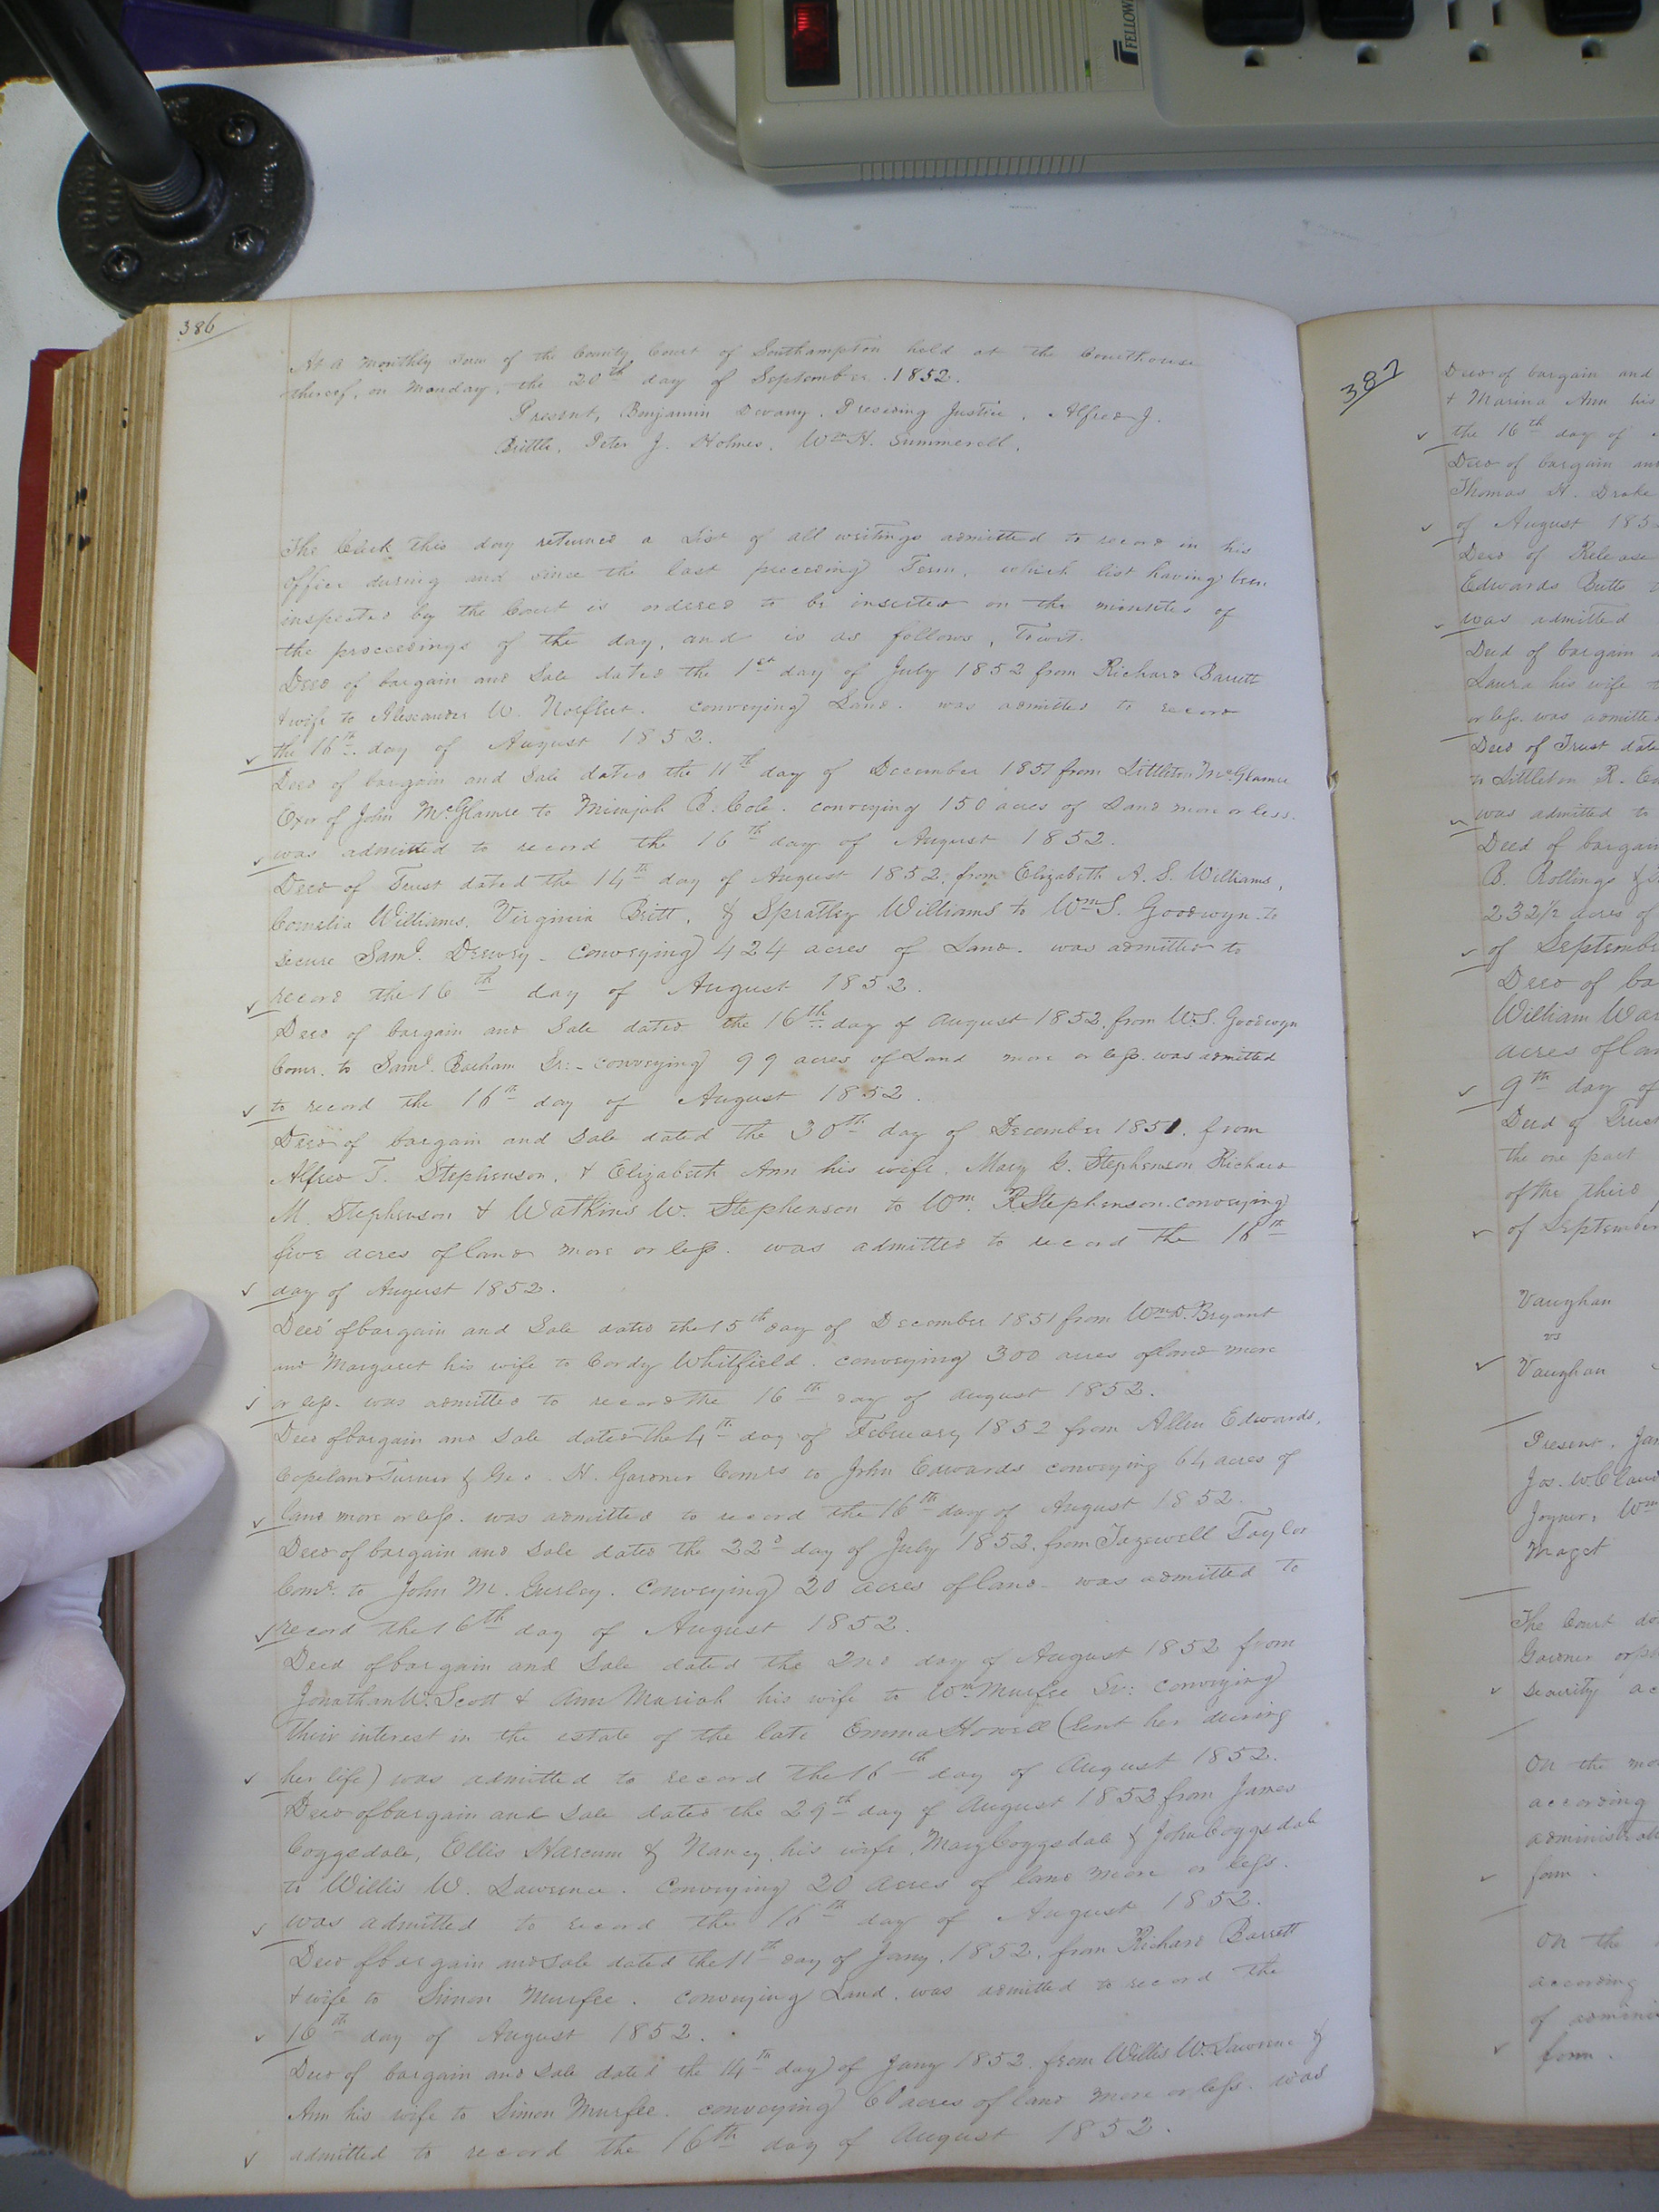 FELLOWE
386
At a Monthly Term of the County Court of Southampton held at the Courthouse
thereof, on Monday, the 20th day of September 1852.
Present, Benjamin Devany, Presiding Justice, Alfred J.
Brittle, Peter J. Holmes, Wm H. Summerell,
The Clerk this day returned a List of all writings admitted to record in his
office during and since the last preceeding Term, which list having been
inspected by the Court is ordered to be inserted on the minutes of
the proceedings of the day, and is as follows, Towit.
Deed of bargain and Sale dated the 1st day of July 1852 from Richard Barrett
& wife to Alexander W. Norfleet. conveying Land. was admitted to record
the 16th day of August 1852.
Deed of bargain and Sale dated the 11th day of December 1851 from Littleton McGlamre
Exor of John McGlamre to Micajah B. Cole. conveying 150 acres of Land more or less.
was admitted to record the 16th day of August 1852.
Deed of Trust dated the 14th day of August 1852, from Elizabeth A. S. Williams,
Cornelia Williams, Virginia Britt, & Spratley Williams to Wm S. Goodwyn to
secure Saml. Drewry - Conveying 424 acres of Land. was admitted to
record the 16th day of August 1852.
Deed of bargain and Sale dated the 16th day of August 1852, from W. S. Goodwyn
Comr. to Saml. Barham Sr: - conveying 99 acres of Land more or less. was admitted
to record the 16th day of August 1852.
Deed of bargain and Sale dated the 30th day of December 1851. from
Alfred T. Stephenson, & Elizabeth Ann his wife, Mary G. Stephenson Richard
M. Stephenson & Watkins W. Stephenson to Wm. R. Stephenson. conveying
five acres of land more or less. was admitted to record the 16th
day of August 1852.
Deed of bargain and Sale dated the 15th day of December 1851 from Wm D. Bryant
and Margaret his wife to Cordy Whitfield. conveying 300 acres of land more
or less. was admitted to record the 16th day of August 1852.
Deed of bargain and Sale dated the 4th day of February 1852 from Allen Edwards,
Copeland Turner & Geo. H. Gardner Comrs to John Edwards conveying 64 acres of
land more or less. was admitted to record the 16th day of August 1852.
Deed of bargain and Sale dated the 22d day of July 1852, from Tazewell Taylor
Comr. to John M. Gurley. Conveying 20 acres of land - was admitted to
record the 16th day of August 1852.
Deed of bargain and Sale dated the 2nd day of August 1852 from
Jonathan W. Scott & Ann Mariah his wife to Wm. Murfee Sr: conveying
their interest in the estate of the late Emma Howell (lent her during
her life) was admitted to record the 16th day of August 1852.
Deed of bargain and Sale dated the 29th day of August 1852 from James
Coggsdale, Ellis Harcum & Nancy his wife, Mary Coggsdale & John Coggsdale
to Willis W. Lawrence. Conveying 20 acres of land more or less.
was admitted to record the 16th day of August 1852.
Deed of bargain and Sale dated the 11th day of Jany. 1852, from Richard Barrett
& wife to Simon Murfee. conveying Land. was admitted to record the
16th day of August 1852.
Deed of bargain and Sale dated the 14th day of Jany 1852. from Willis W. Lawrence &
Ann his wife to Simon Murfee. conveying 60 acres of land more or less. was
admitted to record the 16th day of August 1852.
387
Deed of bargain and
& Marina Ann his
the 16th day of
Deed of bargain and
Thomas H. Drake
of August 185
Deed of Release
Edwards Butts
was admitted
Deed of bargain
Laura his wife
or less. was admitted
Deed of Trust date
to Littleton R. Ed
was admitted to
Deed of bargain
B. Rollings &
232 1/2 acres of
of Septembe
Deed of ba
William War
acres of lan
9th day of
Deed of Trust
the one part
of the third
of September
Vaughan
vs
Vaughan
Present, Jam
Jos. W. Claud
Joyner, Wm
Maget
The Court do
Gardner
security ac
On the mo
according
administrati
form.
On the
according
of admini
form.